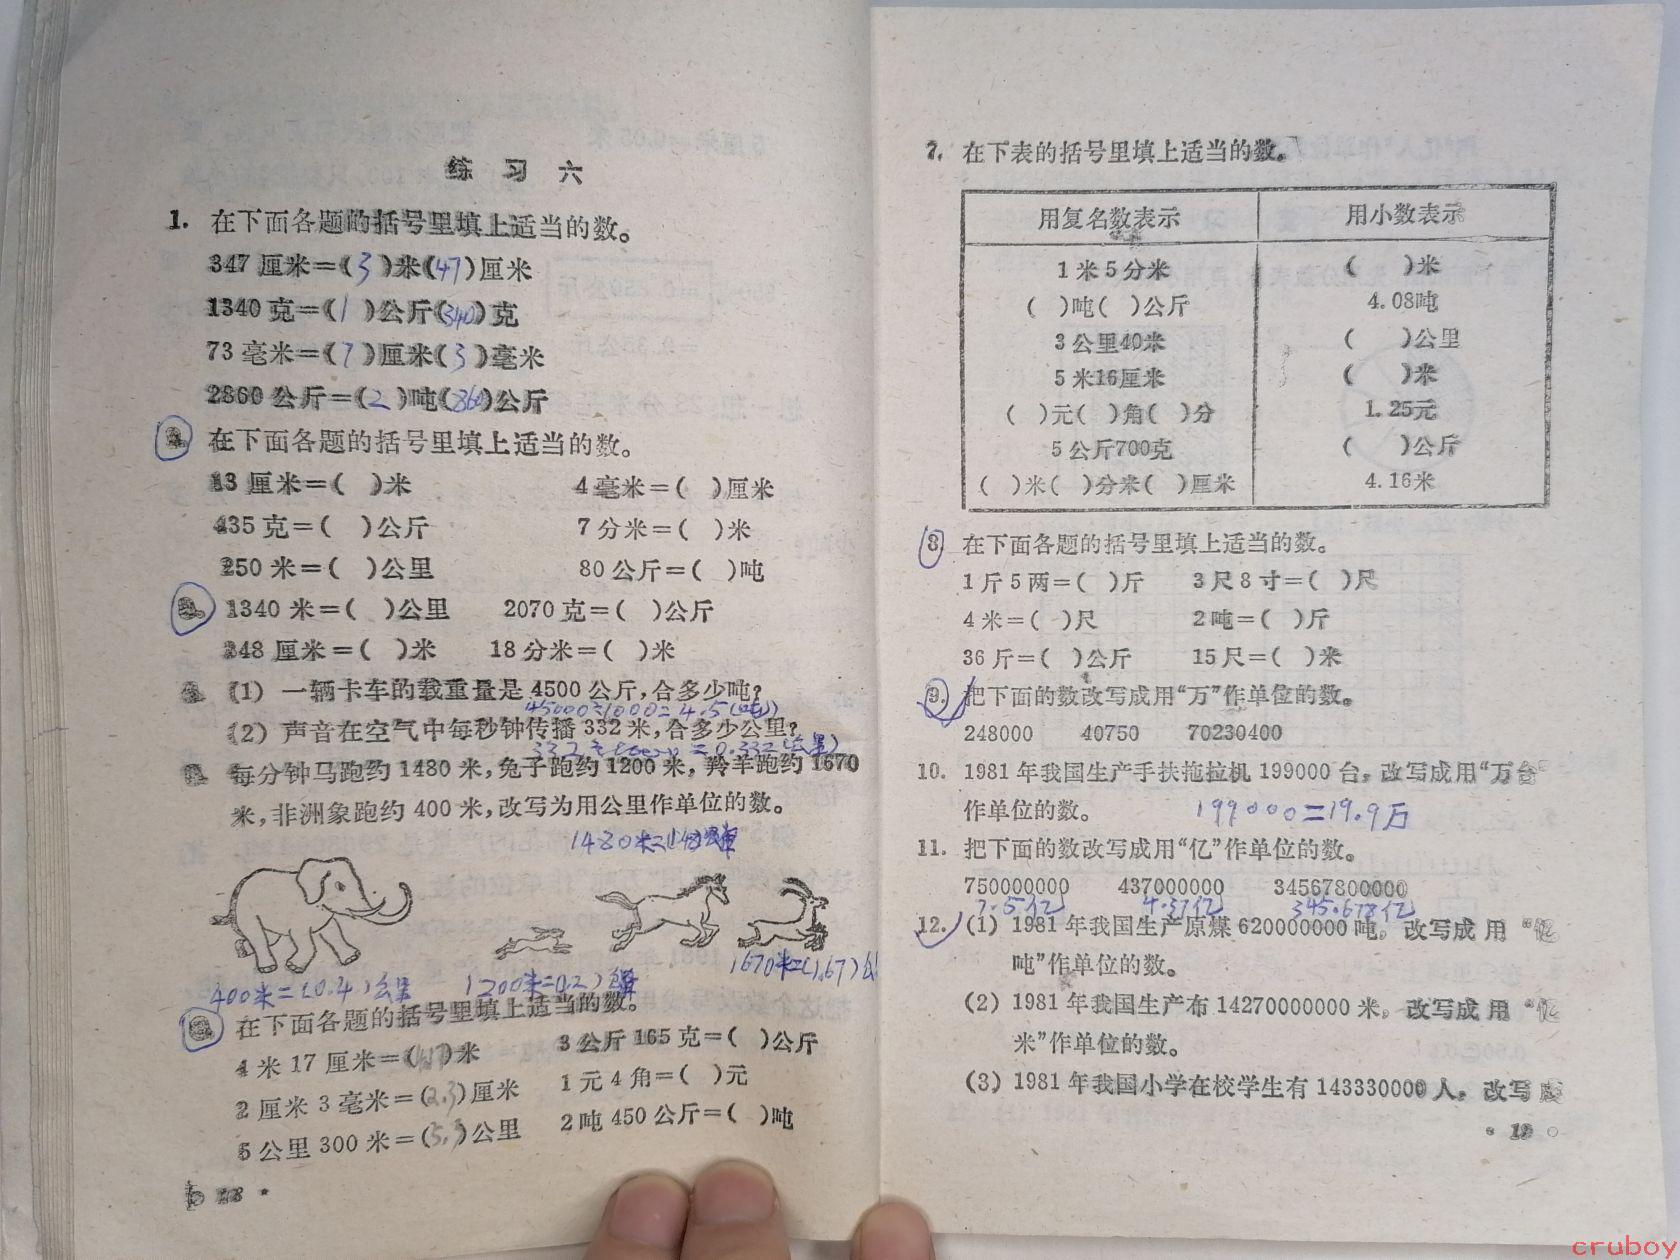 练 习 六
1. 在下面各题的括号里填上适当的数。
347 厘米=(3)米(47)厘米
1340 克=(1)公斤(340)克
73 毫米=(7)厘米(3)毫米
2860 公斤=(2)吨(860)公斤
2. 在下面各题的括号里填上适当的数。
13 厘米=( )米 4 毫米=( )厘米
435 克=( )公斤 7 分米=( )米
250 米=( )公里 80 公斤=( )吨
3. 1340 米=( )公里 2070 克=( )公斤
348 厘米=( )米 18 分米=( )米
4. (1) 一辆卡车的载重量是 4500 公斤,合多少吨?
45000÷1000=4.5(吨)
(2) 声音在空气中每秒钟传播 332 米,合多少公里?
332÷1000=0.332(公里)
5. 每分钟马跑约 1480 米,兔子跑约 1200 米,羚羊跑约 1670
米,非洲象跑约 400 米,改写为用公里作单位的数。
1480米=1.48
1670米=(1.67)公
400米=(0.4)公里
1200米=
6. 在下面各题的括号里填上适当的数。
4 米 17 厘米=(4.17)米 3 公斤 165 克=( )公斤
2 厘米 3 毫米=(2.3)厘米 1 元 4 角=( )元
5 公里 300 米=(5.3)公里 2 吨 450 公斤=( )吨
18
7. 在下表的括号里填上适当的数。
用复名数表示 用小数表示
1 米 5 分米 ( )米
( )吨( )公斤 4.08吨
3 公里40米 ( )公里
5 米16厘米 ( )米
( )元( )角( )分 1.25元
5 公斤700克 ( )公斤
( )米( )分米( )厘米 4.16米
8. 在下面各题的括号里填上适当的数。
1 斤 5 两=( )斤 3 尺 8 寸=( )尺
4 米=( )尺 2 吨=( )斤
36 斤=( )公斤 15 尺=( )米
9. 把下面的数改写成用“万”作单位的数。
248000 40750 70230400
10. 1981 年我国生产手扶拖拉机 199000 台。改写成用“万台”
作单位的数。
199000=19.9万
11. 把下面的数改写成用“亿”作单位的数。
750000000 437000000 34567800000
7.5亿 4.37亿 345.678亿
12. (1) 1981 年我国生产原煤 620000000 吨。改写成 用 “亿
吨”作单位的数。
(2) 1981 年我国生产布 14270000000 米。改写成 用 “亿
米”作单位的数。
(3) 1981 年我国小学在校学生有 143330000 人。改写成
19
cruboy